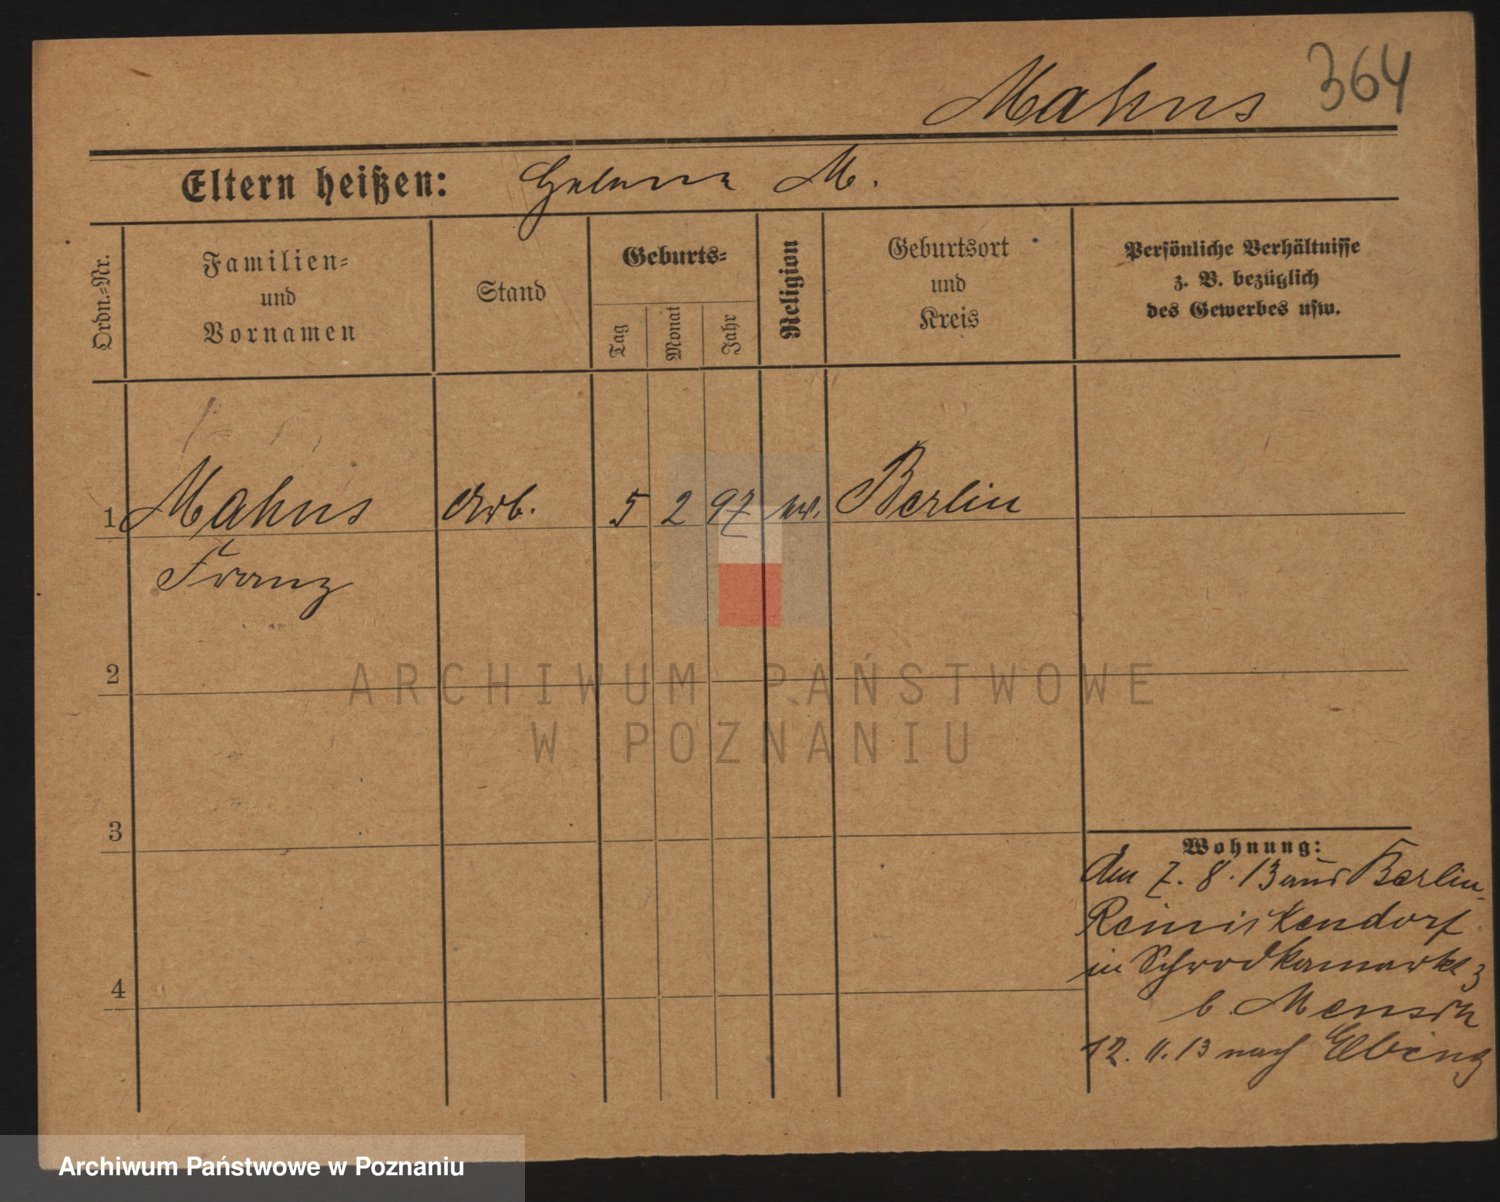 Mahns 364
Eltern heißen: Helene M.
Ordn.=Nr.
Familien=
und
Vornamen
Stand
Geburts=
Tag
Monat
Jahr
Religion
Geburtsort
und
Kreis
Persönliche Verhältnisse
z. B. bezüglich
des Gewerbes usw.
1 Mahns Arb. 5 2 97 ev. Berlin
Franz
2
3
4
Wohnung:
den 7. 8. 13 aus Berlin-
Reinickendorf
in Schrodkamarkt 3
b. Mensch
12. 11. 13 nach Elbing
ARCHIWUM PAŃSTWOWE
W POZNANIU
Archiwum Państwowe w Poznaniu